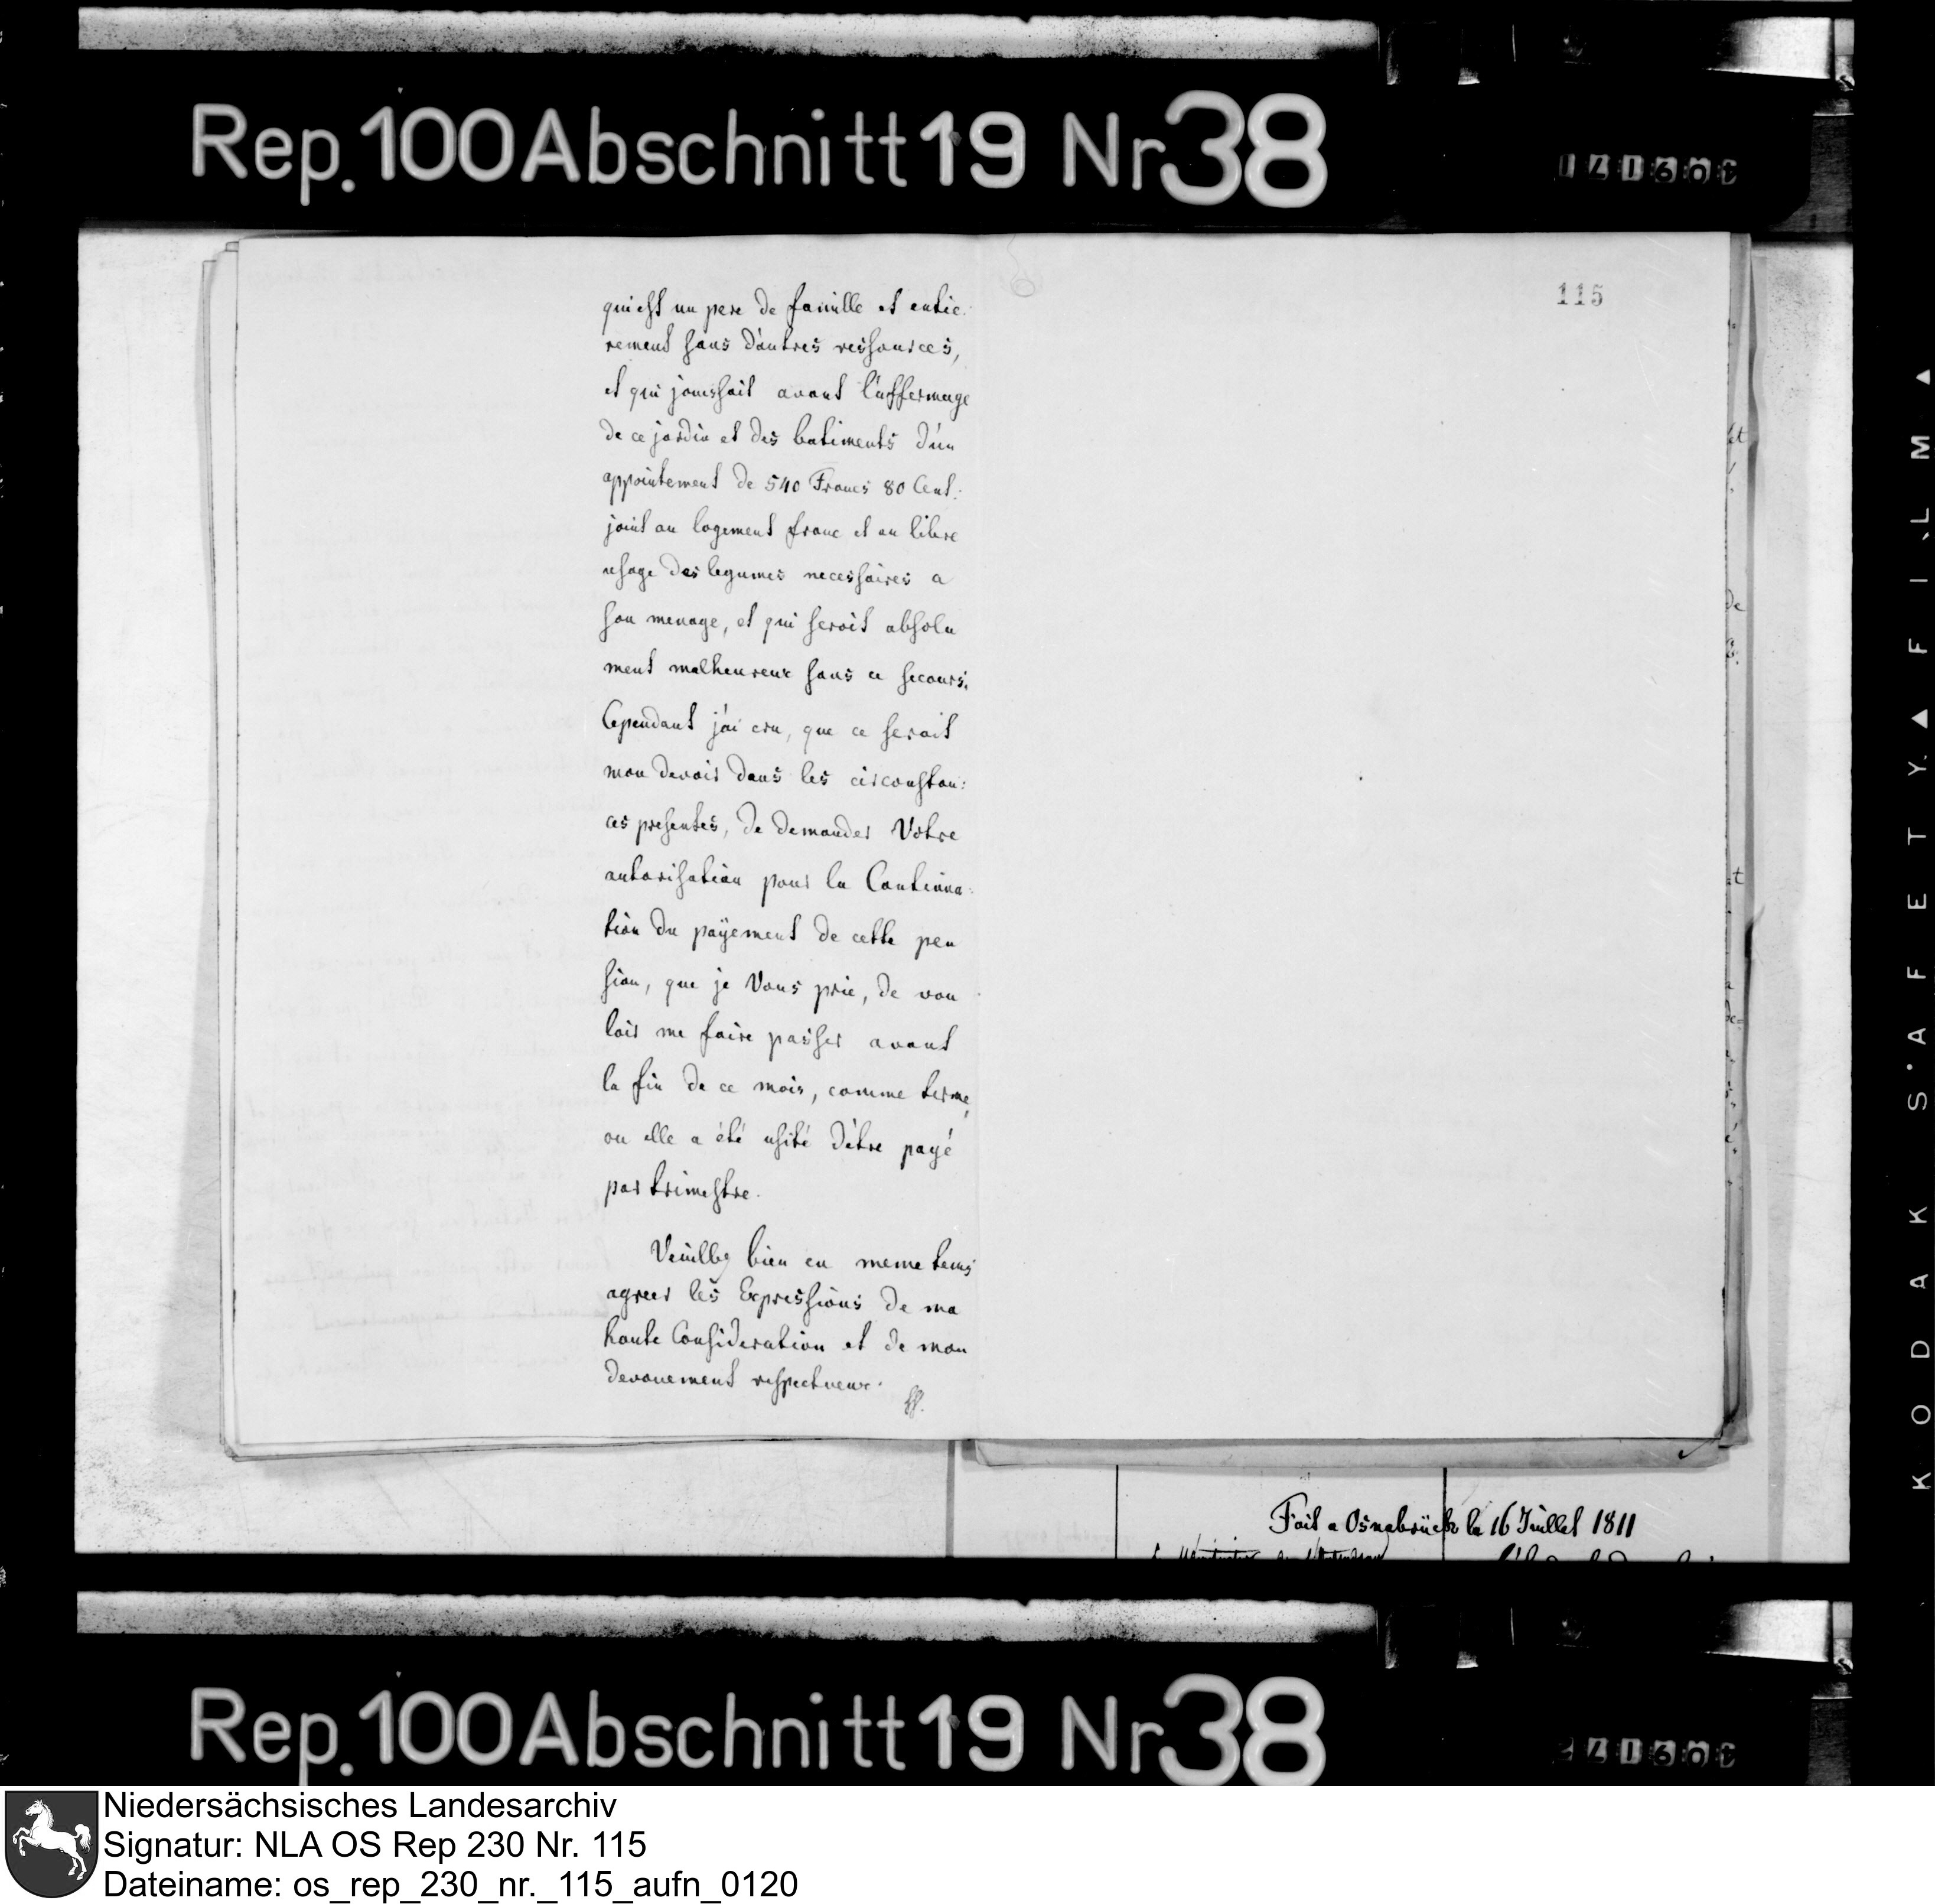 Rep.100 Abschnitt 19 Nr 38
115
qui est un pere de famille et entie-
rement sans d'autres ressources,
et qui jouissait avant l'affermage
de ce jardin et des batiments d'un
appointement de 540 Francs 80 Cent:
joint au logement franc et au libre
usage des legumes necessaires a
son menage, et qui seroit absolu
ment malheureux sans ce secours.
Cependant j'ai cru, que ce serait
mon devoir dans les circonstan:
ces presentes, de demander Votre
autorisation pour la Continua:
tion du payement de cette pen
sion, que je Vous prie, de vou
loir me faire passer avant
la fin de ce mois, comme terme,
ou elle a été usité d'être payé
par trimestre.
Veuillez bien en meme tems
agreer les Expressions de ma
haute Consideration et de mon
devouement respectueux.
Fait a Osnabrück le 16 Juillet 1811
KODAK SAFETY FILM
Rep.100 Abschnitt 19 Nr 38
Niedersächsisches Landesarchiv
Signatur: NLA OS Rep 230 Nr. 115
Dateiname: os_rep_230_nr._115_aufn_0120